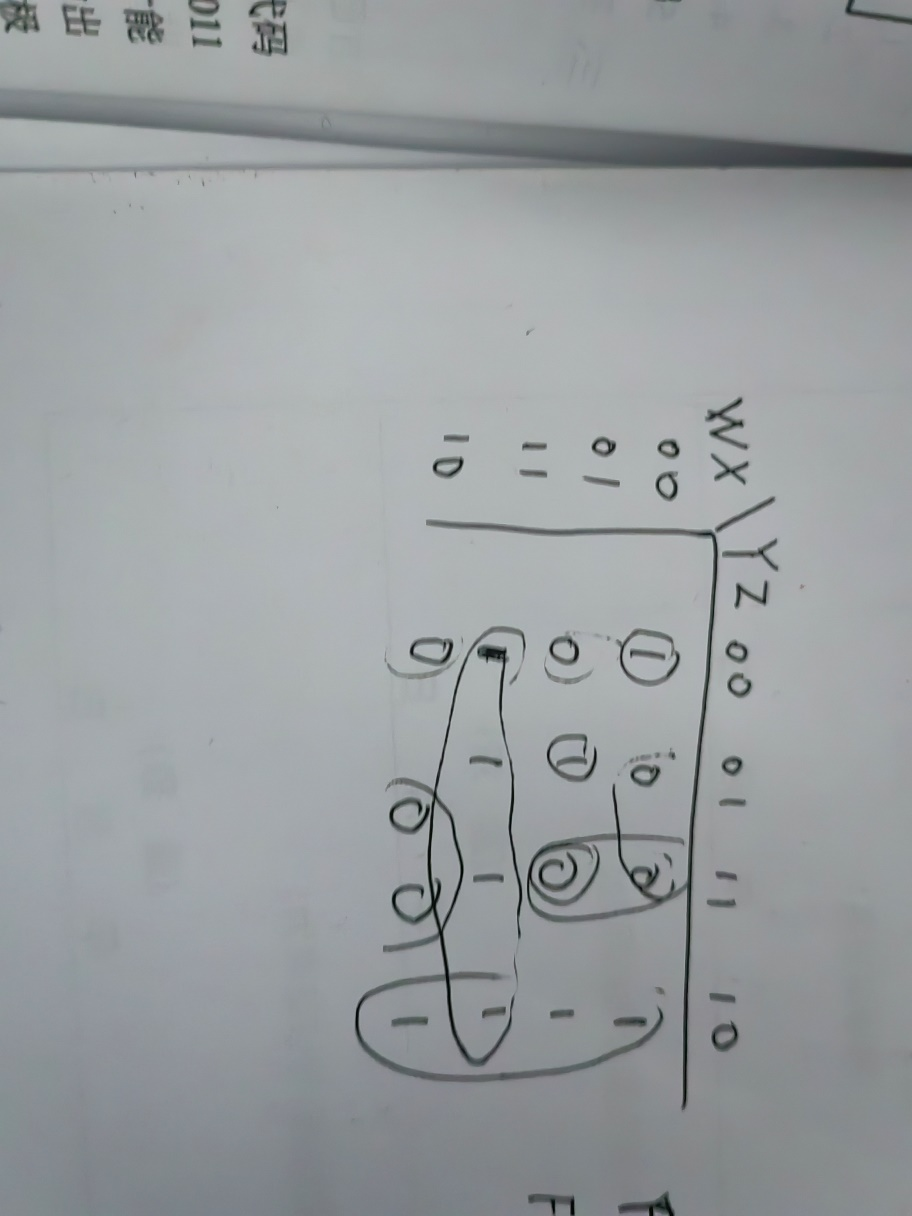 代码
011
能
出
WX\YZ 00 01 11 10
00 1 0 0 1
01 0 1 0 1
11 1 1 1 1
10 0 0 0 1
F